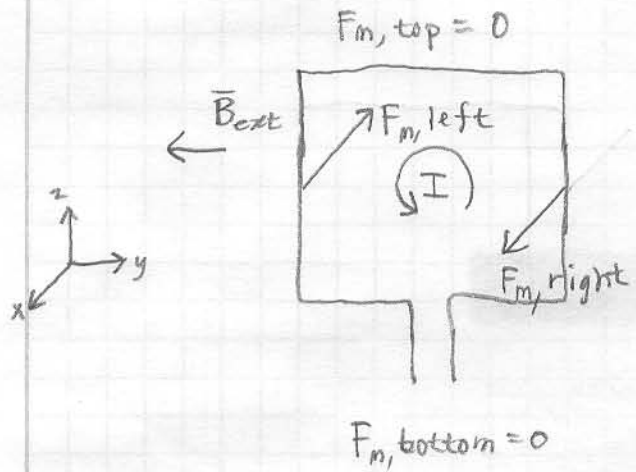 F_m, top = 0
B̅_ext
F_m, left
I
z
y
x
F_m, right
F_m, bottom = 0